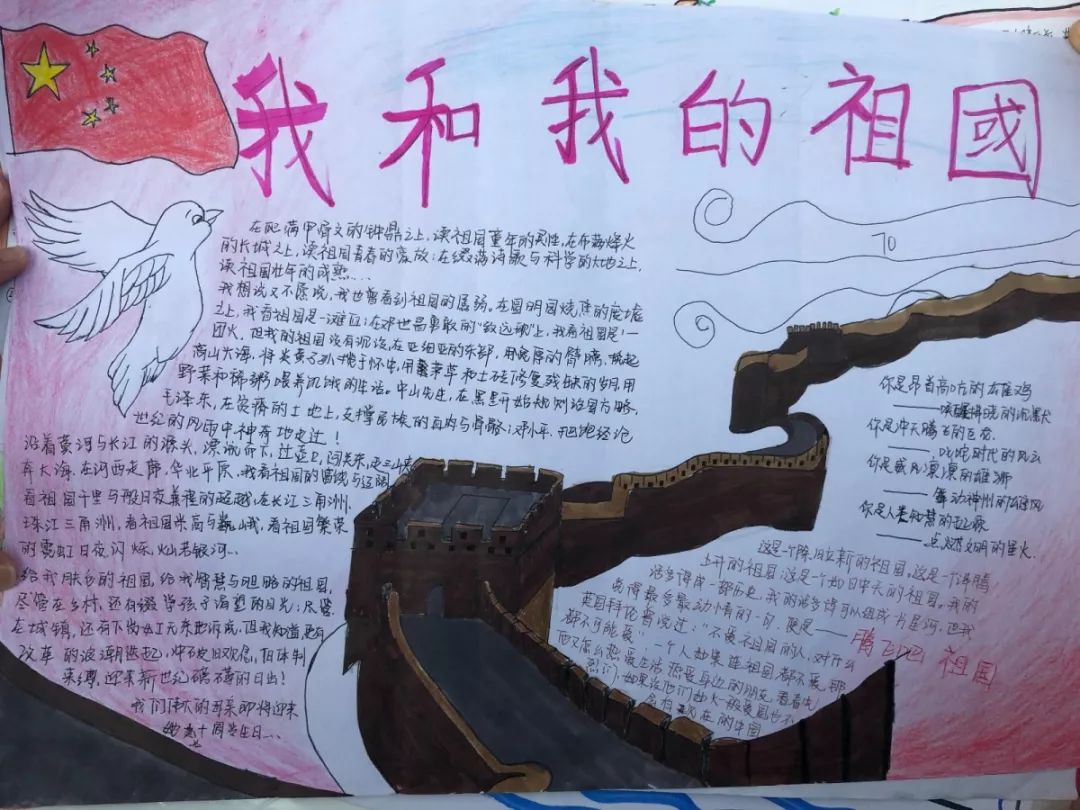 我和我的祖國
70
在配满甲骨文的钟鼎之上，读祖国童年的灵性，在布满烽火
的长城之上，读祖国青春的豪放；在缀满诗歌与科学的大地之上，
读祖国壮年的成熟……
我想说又不愿说，我也曾看到祖国的孱弱。在圆明园烧焦的废墟
之上，我看祖国是一滩血；在邓世昌勇敢的“致远舰”上，我看祖国是一
团火，但我的祖国没有沉没，在亚细亚的东部，用宽厚的臂膀，
高山大海，将炎黄子孙揽于怀中，用草和土砖修复残缺的岁月，用
野菜和稀粥喂养饥饿的生活。中山先生，在黑暗开始规则治国方略，
毛泽东，在贫瘠的土地上，支撑民族的血肉与骨骼；邓小平，
世纪的风雨中神奇地走过！
沿着黄河与长江的源头，漂流而下，过壶口，闯关东，走三
奔大海，在河西走廊，华北平原，我看祖国的富饶与辽阔
看祖国千里与一般日夜兼程的超越，在长江三角洲，
珠江三角洲，看祖国崇高与巍峨，看祖国繁荣
的霓虹日夜闪烁，灿若银河…
给我肤色的祖国，给我智慧与胆略的祖国，
尽管在乡村，还有辍学孩子渴望的目光；尽管
在城镇，还有下岗女工无奈地诉说，但我知道，更有
改革的波潮迭起，冲破旧观念，旧体制
束缚，迎来新世纪磅礴的日出！
我们伟大的即将迎来
她七十周岁生日…
你是昂首高吭的雄鸡
——唤醒拂晓的沉默
你是冲天腾飞的巨龙
——叱咤时代的风云
你是威风凛凛的雄狮
——舞动神州的雄风
你是人类智慧的起源
——点燃文明的星火
这是一个除旧立新的祖国，这是一个升腾
上升的祖国；这是一个如日中天的祖国，我的
诸多诗岸一部历史，我的诸多诗可以组成一片星河，但我
觉得最多最动情的一句，便是——腾飞吧 祖国
英国拜伦曾说过：“不爱祖国的人，对什么
都不可能爱”。一个人如果连祖国都不爱，那
他又怎么热爱生活，热爱身边的朋友，看看先
烈们，如果没他们如火一般爱国也不
会有现在的中国